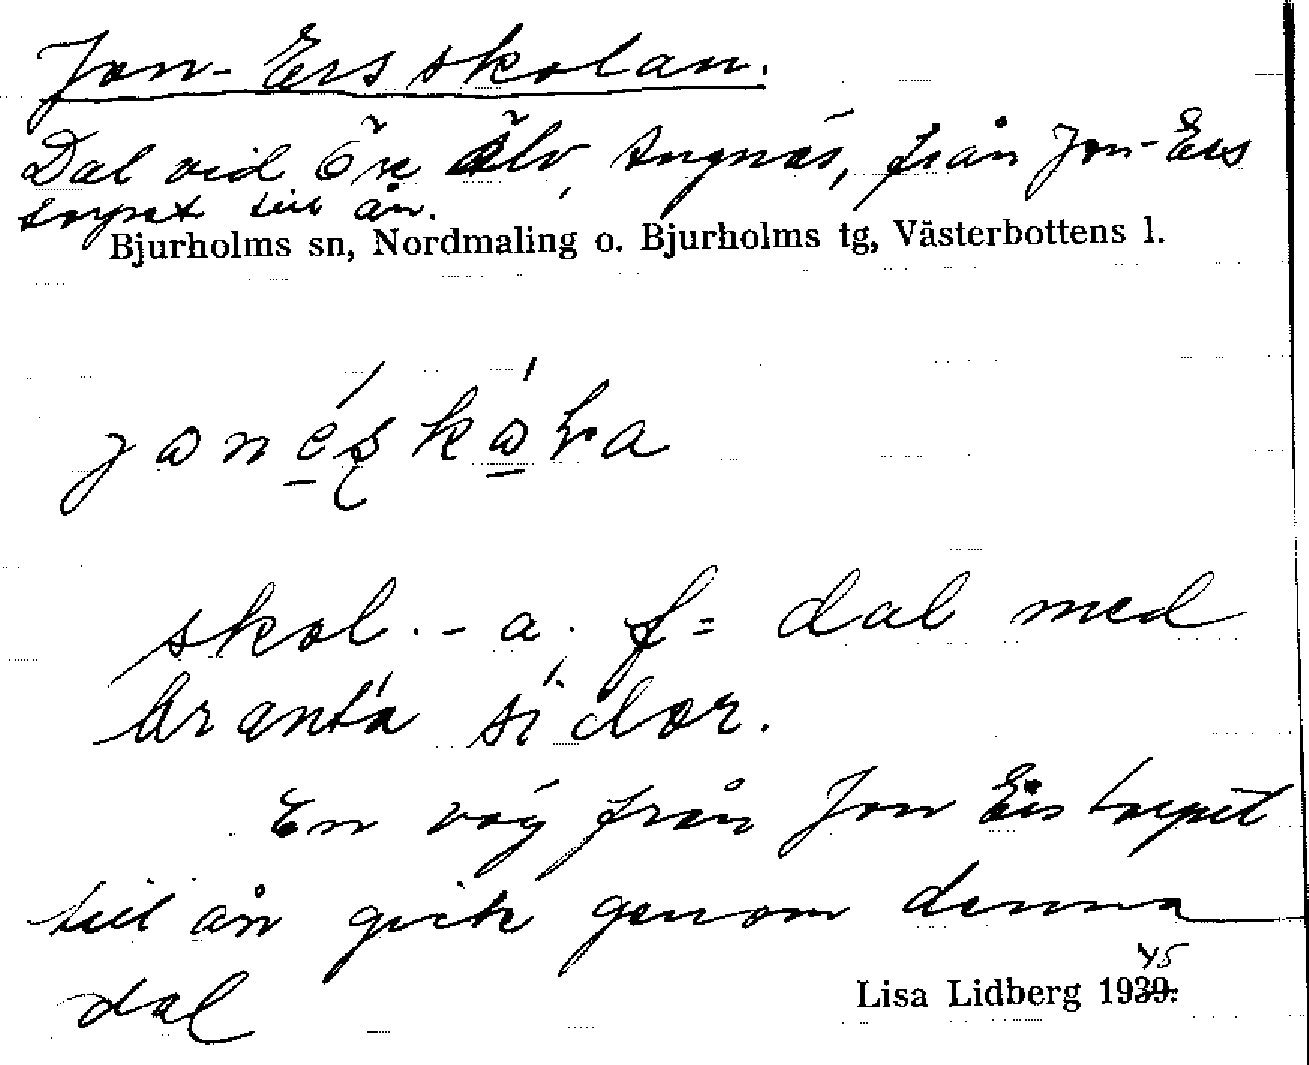 Jon-Ers skolan.
Dal vid Öre älv, Angnäs, från Jon-Ers
torpet till ån.
Bjurholms sn, Nordmaling o. Bjurholms tg, Västerbottens l.
skol. - a. f = dal med
branta sidor.
En väg från Jon Ers torpet
till ån gick genom denna
dal
Lisa Lidberg 1945